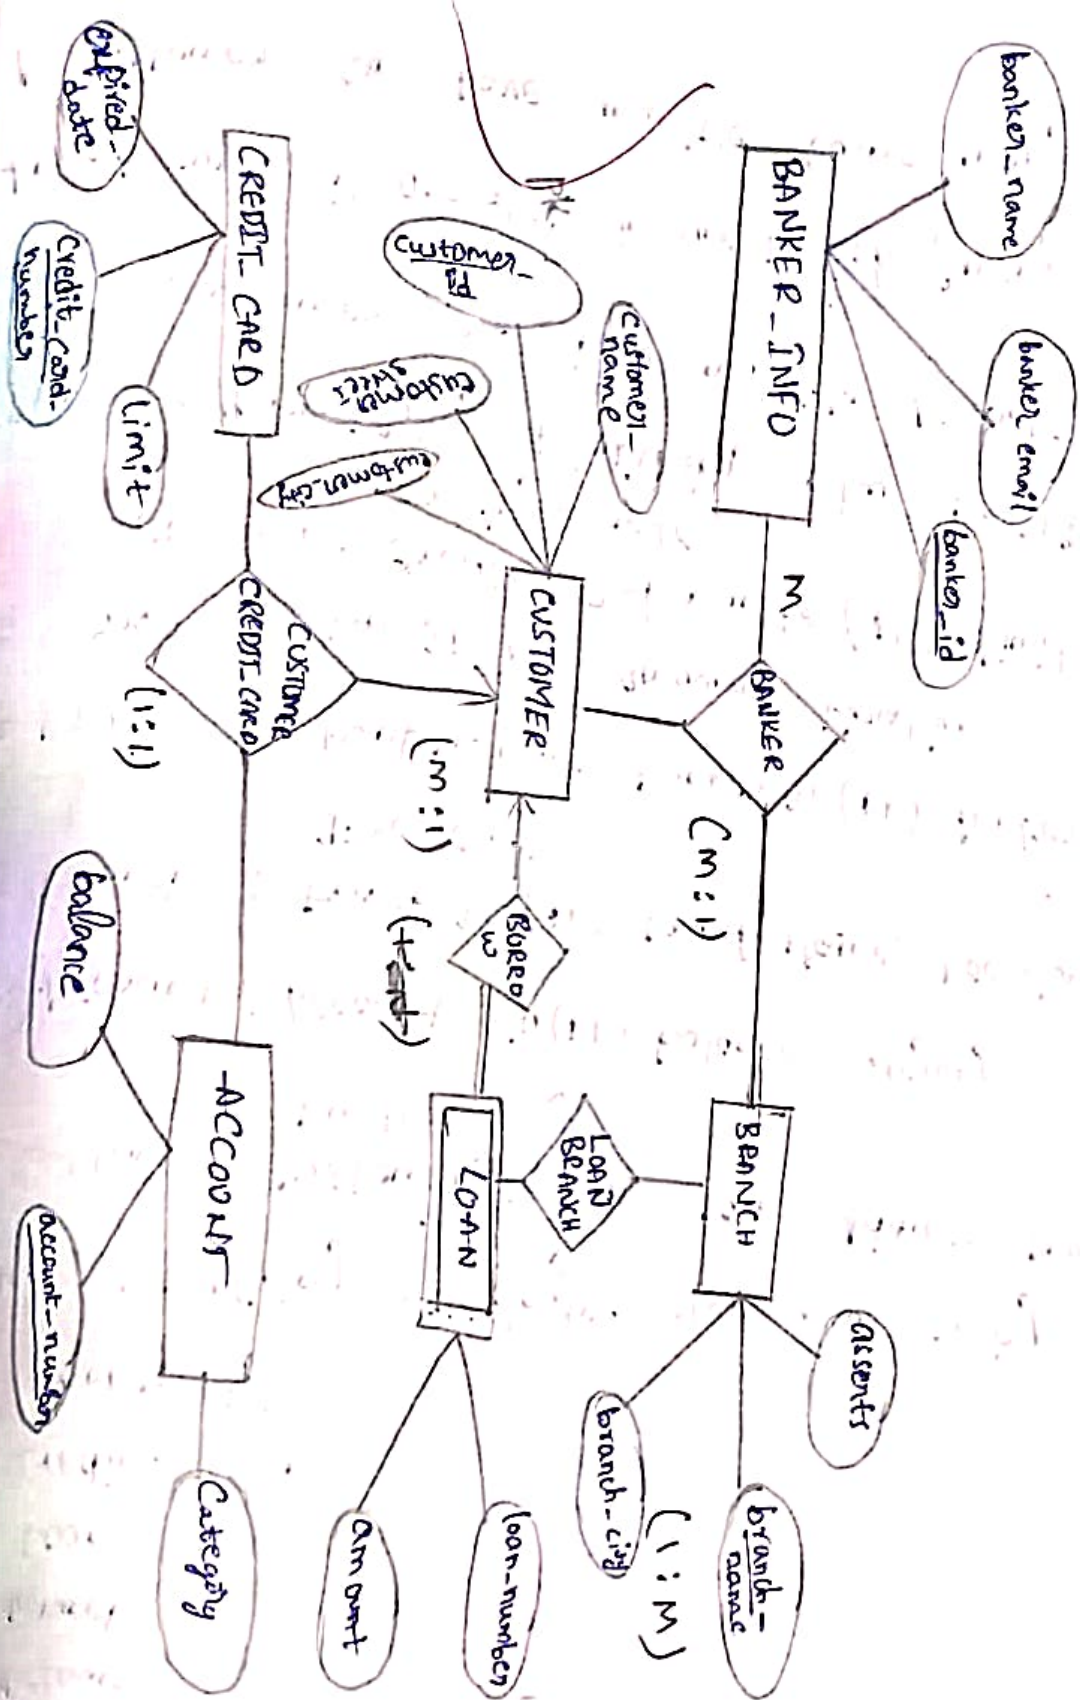 banker_name
banker email
banker_id
BANKER_INFO
M
BANKER
(M:1)
BRANCH
assents
branch_
name
branch_city
(1:M)
PK
customer_
id
customer_
name
customer
street
customer_city
CUSTOMER
(M:1)
BORRO
W
LOAN
BRANCH
LOAN
loan_number
amount
CREDIT_CARD
expired_
date
credit_card_
number
limit
CUSTOMER
CREDIT_CARD
(1:1)
ACCOUNT
balance
account_number
Category